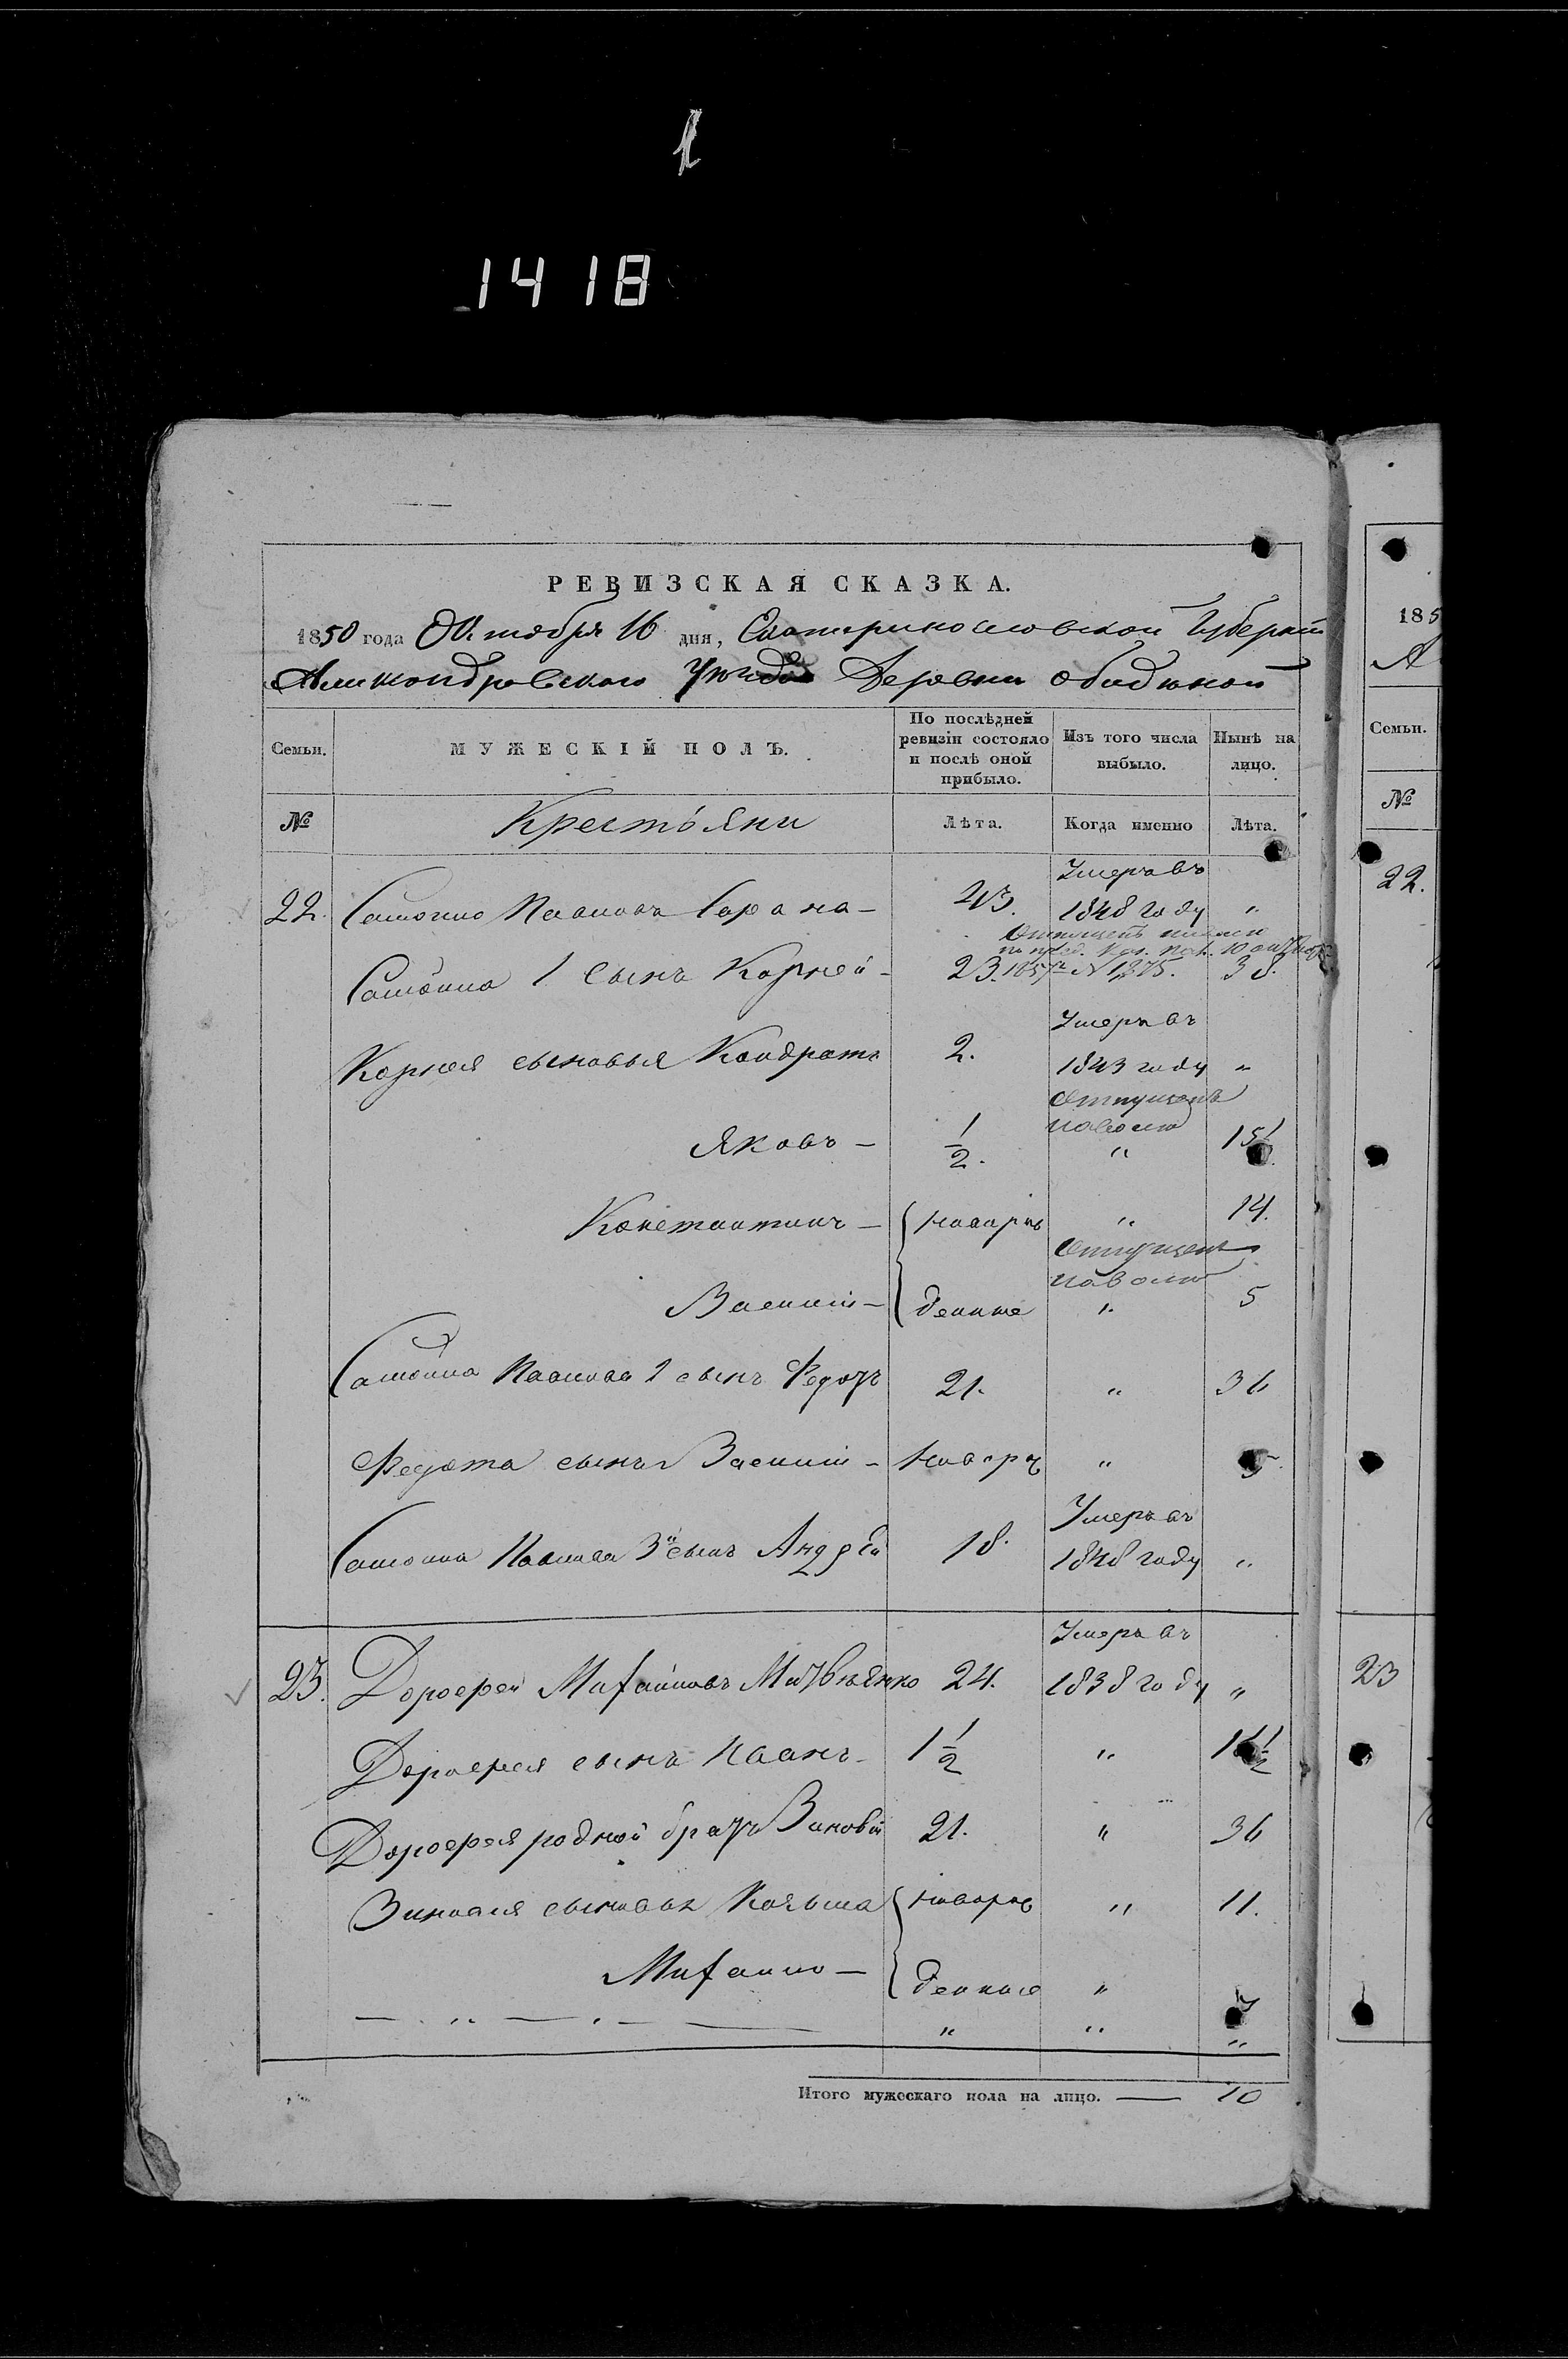 1418
РЕВИЗСКАЯ СКАЗКА.
1850 года Октября 16 дня, Екатеринославской Губерніи
Александровского Уѣзда Деревни Обидъной
Семьи. МУЖЕСКІЙ ПОЛЪ. По послѣдней ревизіи состояло и послѣ оной прибыло. Изъ того числа выбыло. Нынѣ на лицо.
№ Крестьяни Лѣта. Когда именно Лѣта.
Умеръ въ
22. Самойло Павловъ 43. 1848 году "
Отпущенъ
10 октября
Самойла 1 сынъ Корней - 23. 1857 № 1,275. 38.
Умеръ въ
Корнея сыновья Кондратъ 2. 1843 году "
Отпущенъ
наволю
Яковъ - 1/2. " 15 1/2
Константинъ - новорж " 14.
Отпущенъ
наволю
Василий - денные " 5
Самойла Павлова 2 сынъ Федотъ 21. " 36
Федота сынъ Василий - новорж " 5.
Умеръ въ
Самойла Павлова 3й сынъ Андрей 18. 1848 году "
Умеръ въ
23. Дорофей Михайловъ Матвѣенко 24. 1838 году "
Дорофея сынъ Иванъ - 1 1/2 " 16 1/2
Дорофея родной братъ Зиновій 21. " 36
Зиновія сыновья Козьма новорж " 11.
Михайло - денные " 7
" " "
Итого мужескаго пола на лицо. — 10
185
А
Семьи.
№
22.
23